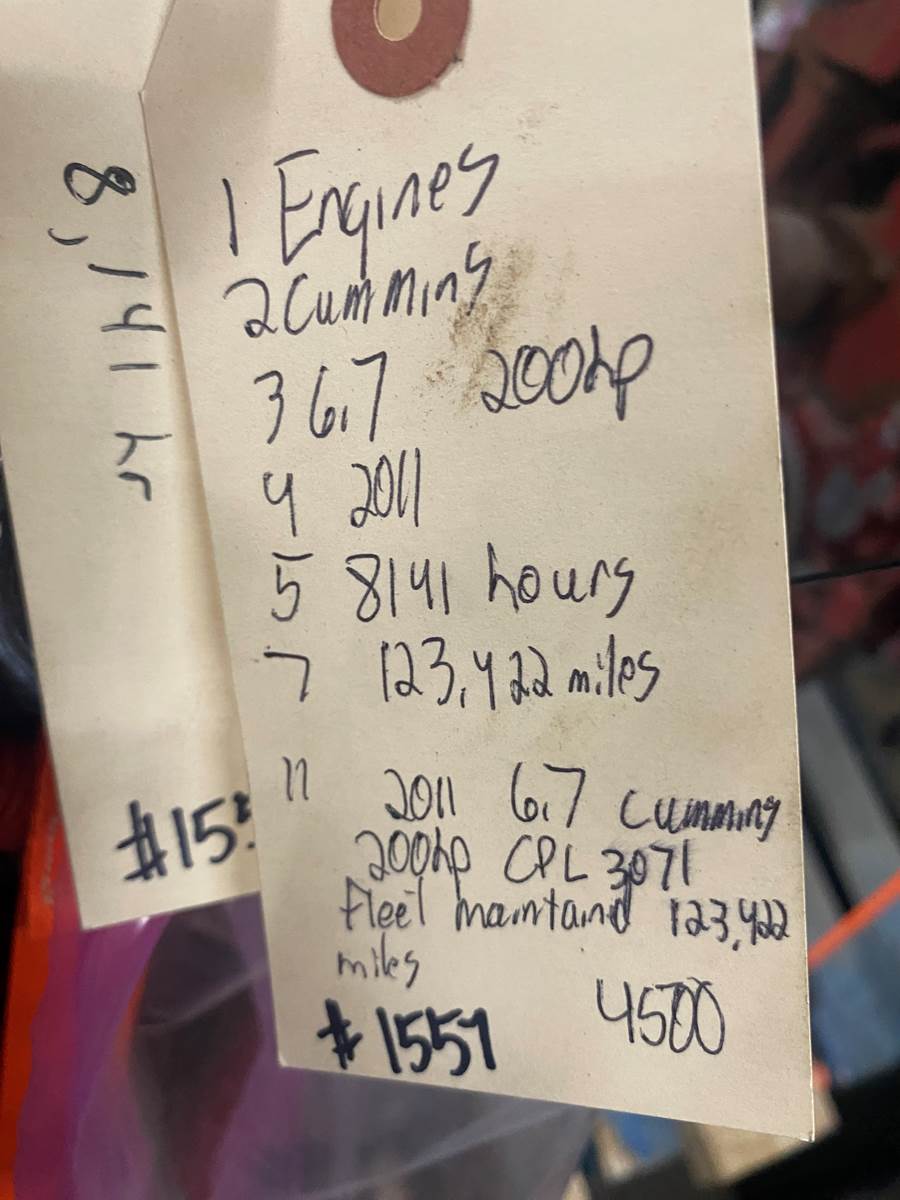 8,141 hr
#155
1 Engines
2 Cummins
3 6.7 200hp
4 2011
5 8141 hours
7 123,422 miles
11 2011 6.7 Cummins
200hp CPL 3071
fleet maintaind 123,422
miles
#1557 4500